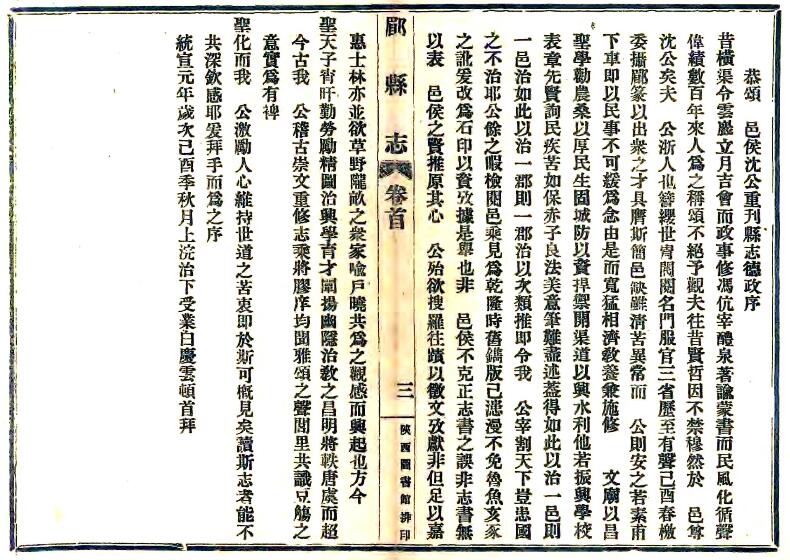 恭頌　邑侯沈公重刊縣志德政序
昔橫渠令雲巖立月吉會而政事修馮伉宰醴泉著諭蒙書而民風化循聲
偉績數百年來人爲之稱頌不絕予觀夫往昔賢哲因不禁穆然於　邑尊
沈公矣夫　公浙人也簪纓世胄閥閱名門服官三省歷至有聲己酉春檄
委攝郿篆以出衆之才具膺斯簡邑缺雖淸苦異常而　公則安之若素甫
下車卽以民事不可緩爲念由是而寬猛相濟敎養兼施修　　文廟以昌
聖學勸農桑以厚民生固城防以資捍禦開渠道以興水利他若振興學校
表章先賢詢民疾苦如保赤子良法美意筆難盡述蓋得如此以治一邑則
一邑治如此以治一郡則一郡治以次類推卽令我　公宰割天下豈患國
之不治耶公餘之暇檢閱邑乘見爲乾隆時舊鐫版已漶漫不免魯魚亥豕
之訛爰改爲石印以資攷據是舉也非　邑侯不克正志書之誤非志書無
以表　邑侯之賢推原其心　公殆欲搜羅往蹟以徵文攷獻非但足以嘉
郿縣志
卷首
三
陝西圖書館排印
惠士林亦並欲草野隴畝之衆家喻戶曉共爲之觀感而興起也方今
聖天子宵旰勤勞勵精圖治興學育才闡揚幽隱治敎之昌明將軼唐虞而超
今古我　公稽古崇文重修志乘將膠庠均聞雅頌之聲閭里共識豆觴之
意實爲有裨
聖化而我　公激勵人心維持世道之苦衷卽於斯可槪見矣讀斯志者能不
共深欽感耶爰拜手而爲之序
統宣元年歲次己酉季秋月上浣治下受業白慶雲頓首拜